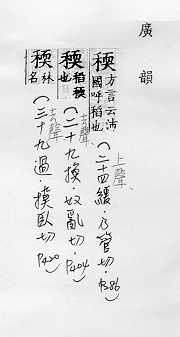 廣韻
稬 方言云沛國呼稻也 (二十四緩·乃管切·P.286) 上聲
稬 稻稬也 (二十九換·奴亂切·P404) 去聲
稬 秫名 (三十九過 臥切 P420) 去聲